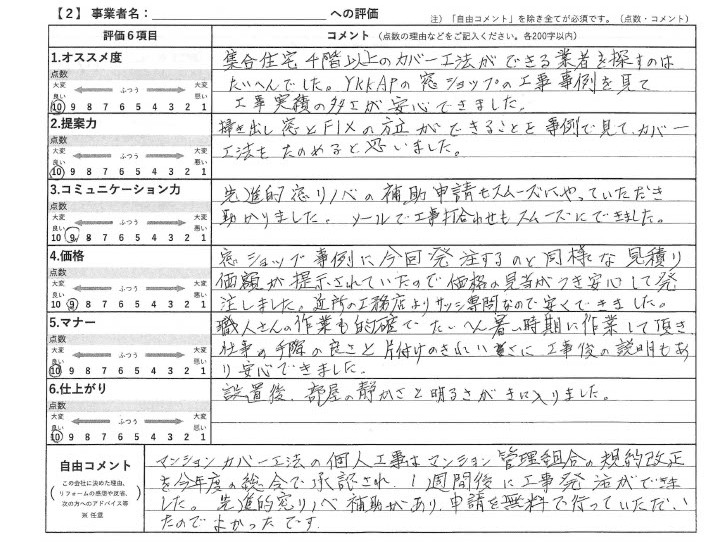 【2】事業者名： への評価
注）「自由コメント」を除き全てが必須です。（点数・コメント）
評価６項目 コメント（点数の理由などをご記入ください。各200字以内）
1.オススメ度
点数
大変良い ふつう 大変悪い
10 9 8 7 6 5 4 3 2 1
集合住宅4階以上のカバー工法ができる業者を探すのは
たいへんでした。YKKAPの窓ショップの工事事例を見て
工事実績の多さが安心できました。
2.提案力
点数
大変良い ふつう 大変悪い
10 9 8 7 6 5 4 3 2 1
掃き出し窓とFIXの方立ができることを事例で見て、カバー
工法をたのめると思いました。
3.コミュニケーション力
点数
大変良い ふつう 大変悪い
10 9 8 7 6 5 4 3 2 1
先進的窓リノベの補助申請もスムーズにやっていただき
助かりました。メールで工事打合わせもスムーズにできました。
4.価格
点数
大変良い ふつう 大変悪い
10 9 8 7 6 5 4 3 2 1
窓ショップ事例に今回発注するのと同様な見積り
価額が提示されていたので価格の見当がつき安心して発
注しました。近所の工務店よりサッシ専門なので安くできました。
5.マナー
点数
大変良い ふつう 大変悪い
10 9 8 7 6 5 4 3 2 1
職人さんの作業も的確でたいへん暑い時期に作業して頂き
仕事の手際の良さと片付けのきれい さに工事後の説明もあ
り安心できました。
6.仕上がり
点数
大変良い ふつう 大変悪い
10 9 8 7 6 5 4 3 2 1
設置後、部屋の静かさと明るさがきに入りました。
自由コメント
この会社に決めた理由、
リフォームの感想や反省、
次の方へのアドバイス等
※ 任意
マンションカバー工法の個人工事はマンション管理組合の規約改正
を今年度の総会で承認され、1週間後に工事発注ができま
した。先進的窓リノベ補助があり、申請を無料で行っていただい
たのでよかったです。